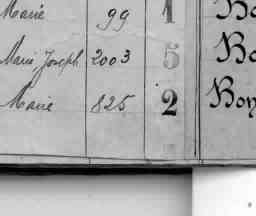 Marie 99 1 Bo
Marie Joseph 2003 5 Bo
Marie 825 2 Boy